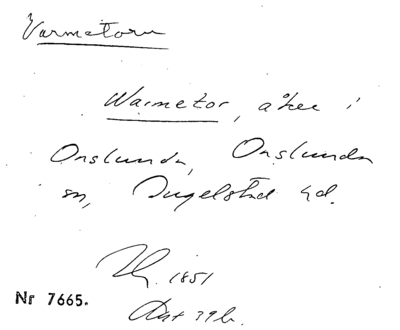 Varmetorn
Warmetor, åker i
Onslunda, Onslunda
sn, Ingelstad hd.
1851
Nr 7665.
Akt 39b.